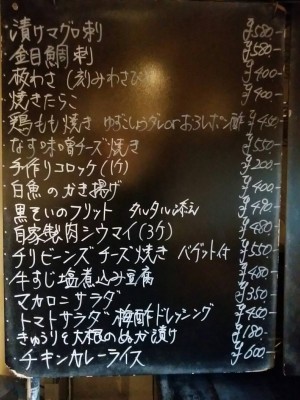 漬けマグロ刺 ¥580-
金目鯛刺 ¥580-
板わさ(刻みわさび) ¥400-
焼きたらこ ¥400-
鶏もも焼き ゆずこしょうダレorおろしポン酢 ¥450-
なす味噌チーズ焼き ¥550-
手作りコロッケ(1ケ) ¥200-
白魚のかき揚げ ¥400-
黒ていのフリット タルタル添え ¥490-
自家製肉シウマイ(3ケ) ¥480-
チリビーンズチーズ焼き バゲット付 ¥550-
牛すじ塩煮込み豆腐 ¥480-
マカロニサラダ ¥350-
トマトサラダ 梅酢ドレッシング ¥450-
きゅうりと大根のぬか漬け ¥180-
チキンカレーライス ¥600-